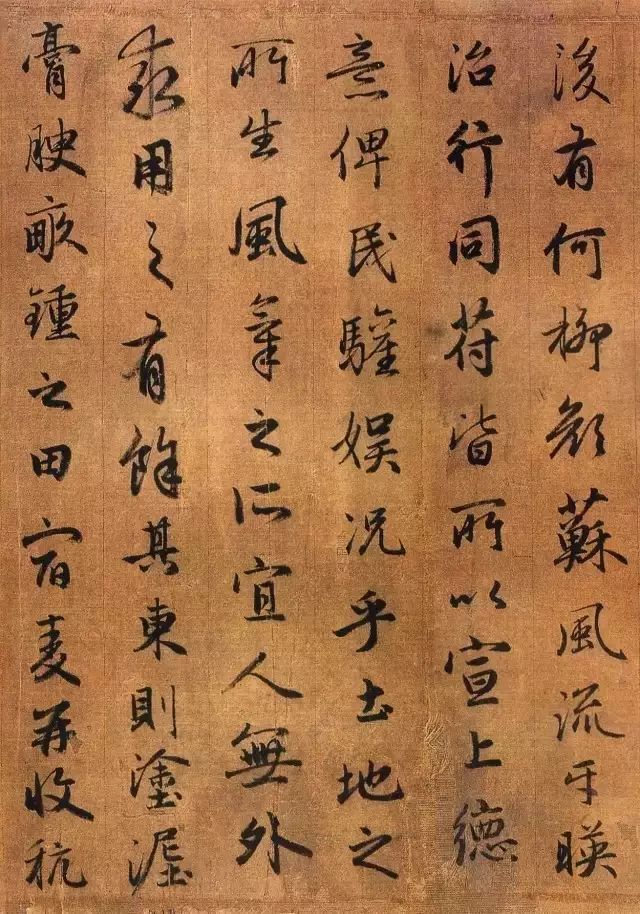 後有何柳顏蘇風流牙暎
治行同苻皆所以宣上德
意俾民驩娛况乎土地之
所生風氣之所宜人無外
求用之有餘其東則塗泥
膏腴畝鍾之田宿麦再收秔